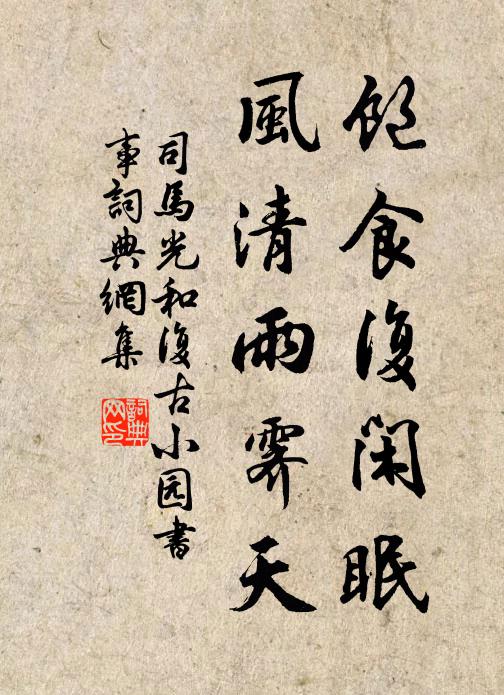 飽食復閑眠
風清雨霽天
司馬光和復古小园書
事詞典網集
詞典
网印